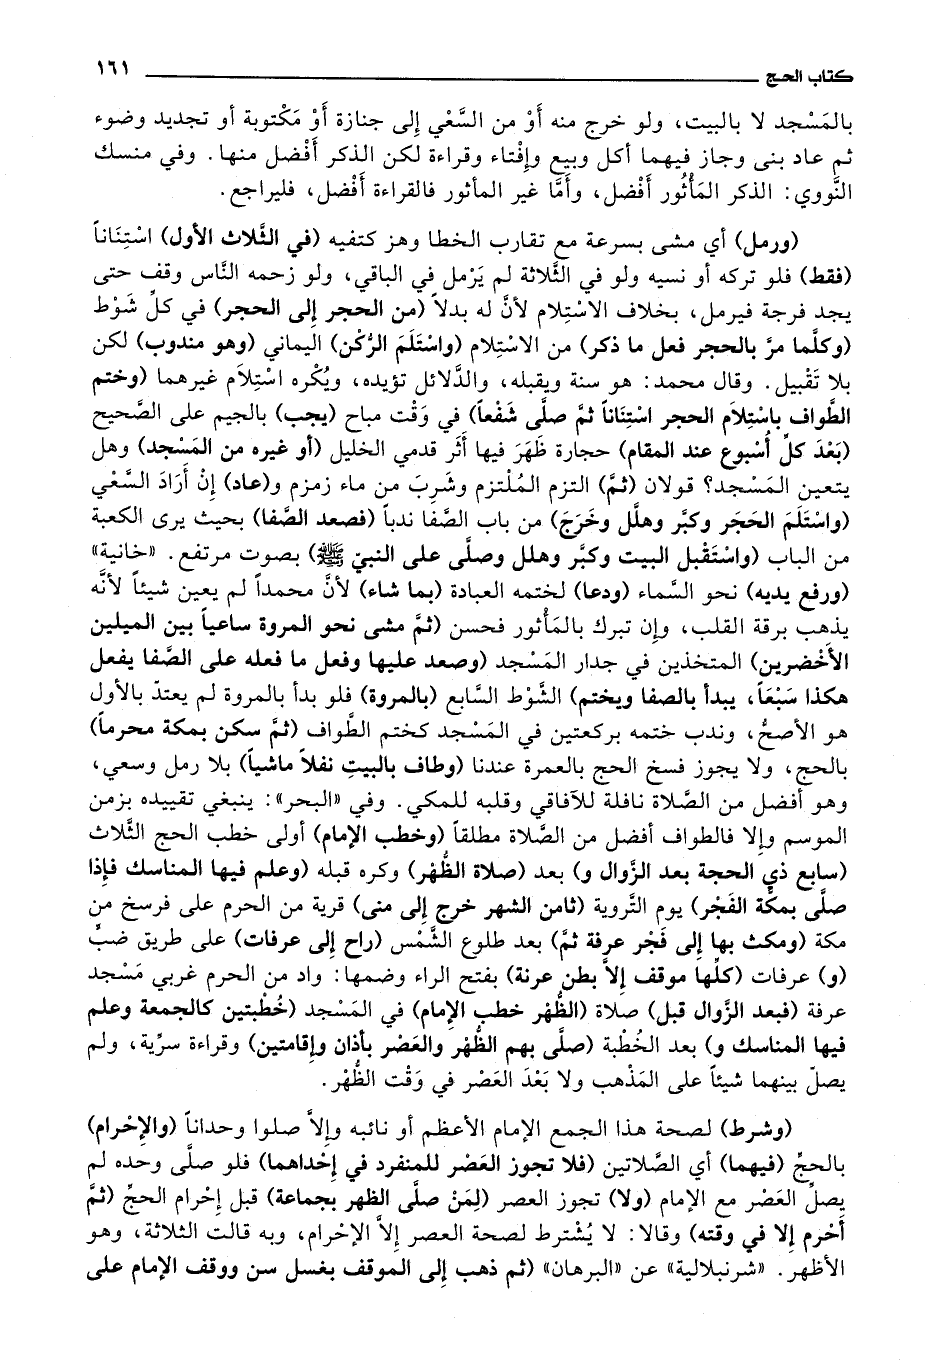 كتاب الحج ١٦١
بالمَسْجد لا بالبيت، ولو خرج منه أَوْ من السَّعْي إلى جنازة أَوْ مَكْتوبة أو تجديد وضوء
ثم عاد بنى وجاز فيهما أكل وبيع وإفْتاء وقراءة لكن الذكر أَفْضل منها. وفي منسك
النَّووي: الذكر المَأْثُور أَفْضل، وأَمَّا غير المأثور فالقراءة أَفْضل، فليراجع.
(ورمل) أي مشى بسرعة مع تقارب الخطا وهز كتفيه (في الثَّلاث الأول) اسْتِنَاناً
(فقط) فلو تركه أو نسيه ولو في الثَّلاثة لم يَرْمل في الباقي، ولو زحمه النَّاس وقف حتى
يجد فرجة فيرمل، بخلاف الاسْتِلام لأنَّ له بدلاً (من الحجر إلى الحجر) في كلِّ شَوْط
(وكلَّما مرَّ بالحجر فعل ما ذكر) من الاسْتِلام (واسْتَلَمَ الرُّكْن) اليماني (وهو مندوب) لكن
بلا تَقْبيل. وقال محمد: هو سنة ويقبله، والدَّلائل تؤيده، ويُكْره اسْتِلاَم غيرهما (وختم
الطَّواف باسْتِلاَم الحجر اسْتِنَاناً ثمَّ صلَّى شَفْعاً) في وَقْت مباح (يجب) بالجيم على الصَّحيح
(بَعْدَ كلِّ أُسْبوع عند المقام) حجارة ظَهَرَ فيها أَثَر قدمي الخليل (أو غيره من المَسْجد) وهل
يتعين المَسْجد؟ قولان (ثمَّ) التزم المُلْتزم وشَرِبَ من ماء زمزم و(عاد) إنْ أَرَادَ السَّعْي
(واسْتَلَمَ الحَجَر وكبَّر وهلَّل وخَرَجَ) من باب الصَّفا ندباً (فصعد الصَّفا) بحيث يرى الكعبة
من الباب (واسْتَقْبل البيت وكبَّر وهلل وصلَّى على النبيّ ﷺ) بصوت مرتفع. «خانية»
(ورفع يديه) نحو السَّماء (ودعا) لختمه العبادة (بما شاء) لأنَّ محمداً لم يعين شيئاً لأنَّه
يذهب برقة القلب، وإن تبرك بالمَأْثور فحسن (ثمَّ مشى نحو المروة ساعياً بين الميلين
الأَخْضرين) المتخذين في جدار المَسْجد (وصعد عليها وفعل ما فعله على الصَّفا يفعل
هكذا سَبْعَاً، يبدأ بالصفا ويختم) الشَّوْط السَّابع (بالمروة) فلو بدأ بالمروة لم يعتدّ بالأول
هو الأصحُّ، وندب ختمه بركعتين في المَسْجد كختم الطَّواف (ثمَّ سكن بمكة محرماً)
بالحج، ولا يجوز فسخ الحج بالعمرة عندنا (وطاف بالبيت نفلاً ماشياً) بلا رمل وسعي،
وهو أفضل من الصَّلاة نافلة للآفاقي وقلبه للمكي. وفي «البحر»: ينبغي تقييده بزمن
الموسم وإلا فالطواف أفضل من الصَّلاة مطلقاً (وخطب الإمام) أولى خطب الحج الثَّلاث
(سابع ذي الحجة بعد الزَّوال و) بعد (صلاة الظُّهْر) وكره قبله (وعلم فيها المناسك فإذا
صلَّى بمكَّة الفَجْر) يوم التَّروية (ثامن الشهر خرج إلى منى) قرية من الحرم على فرسخ من
مكة (ومكث بها إلى فَجْر عرفة ثمَّ) بعد طلوع الشَّمْس (راح إلى عرفات) على طريق ضبِّ
(و) عرفات (كلِّها موقف إلاَّ بطن عرنة) بفتح الراء وضمها: واد من الحرم غربي مَسْجد
عرفة (فبعد الزَّوال قبل) صلاة (الظُّهْر خطب الإمام) في المَسْجد (خُطْبتين كالجمعة وعلم
فيها المناسك و) بعد الخُطْبة (صلَّى بهم الظُّهْر والعَصْر بأذان وإقامتين) وقراءة سرِّية، ولم
يصلّ بينهما شيئاً على المَذْهب ولا بَعْدَ العَصْر في وَقْت الظُّهْر.
(وشرط) لصحة هذا الجمع الإمام الأعظم أو نائبه وإلاَّ صلوا وحداناً (والإحْرام)
بالحجِّ (فيهما) أي الصَّلاتين (فلا تجوز العَصْر للمنفرد في إحْداهما) فلو صلَّى وحده لم
يصلِّ العَصْر مع الإمام (ولا) تجوز العصر (لِمَنْ صلَّى الظهر بجماعة) قبل إحْرام الحجِّ (ثمَّ
أَحْرم إلا في وقته) وقالا: لا يُشْترط لصحة العصر إلاَّ الإحْرام، وبه قالت الثلاثة، وهو
الأظهر. «شرنبلالية» عن «البرهان» (ثم ذهب إلى الموقف بغسل سن ووقف الإمام على